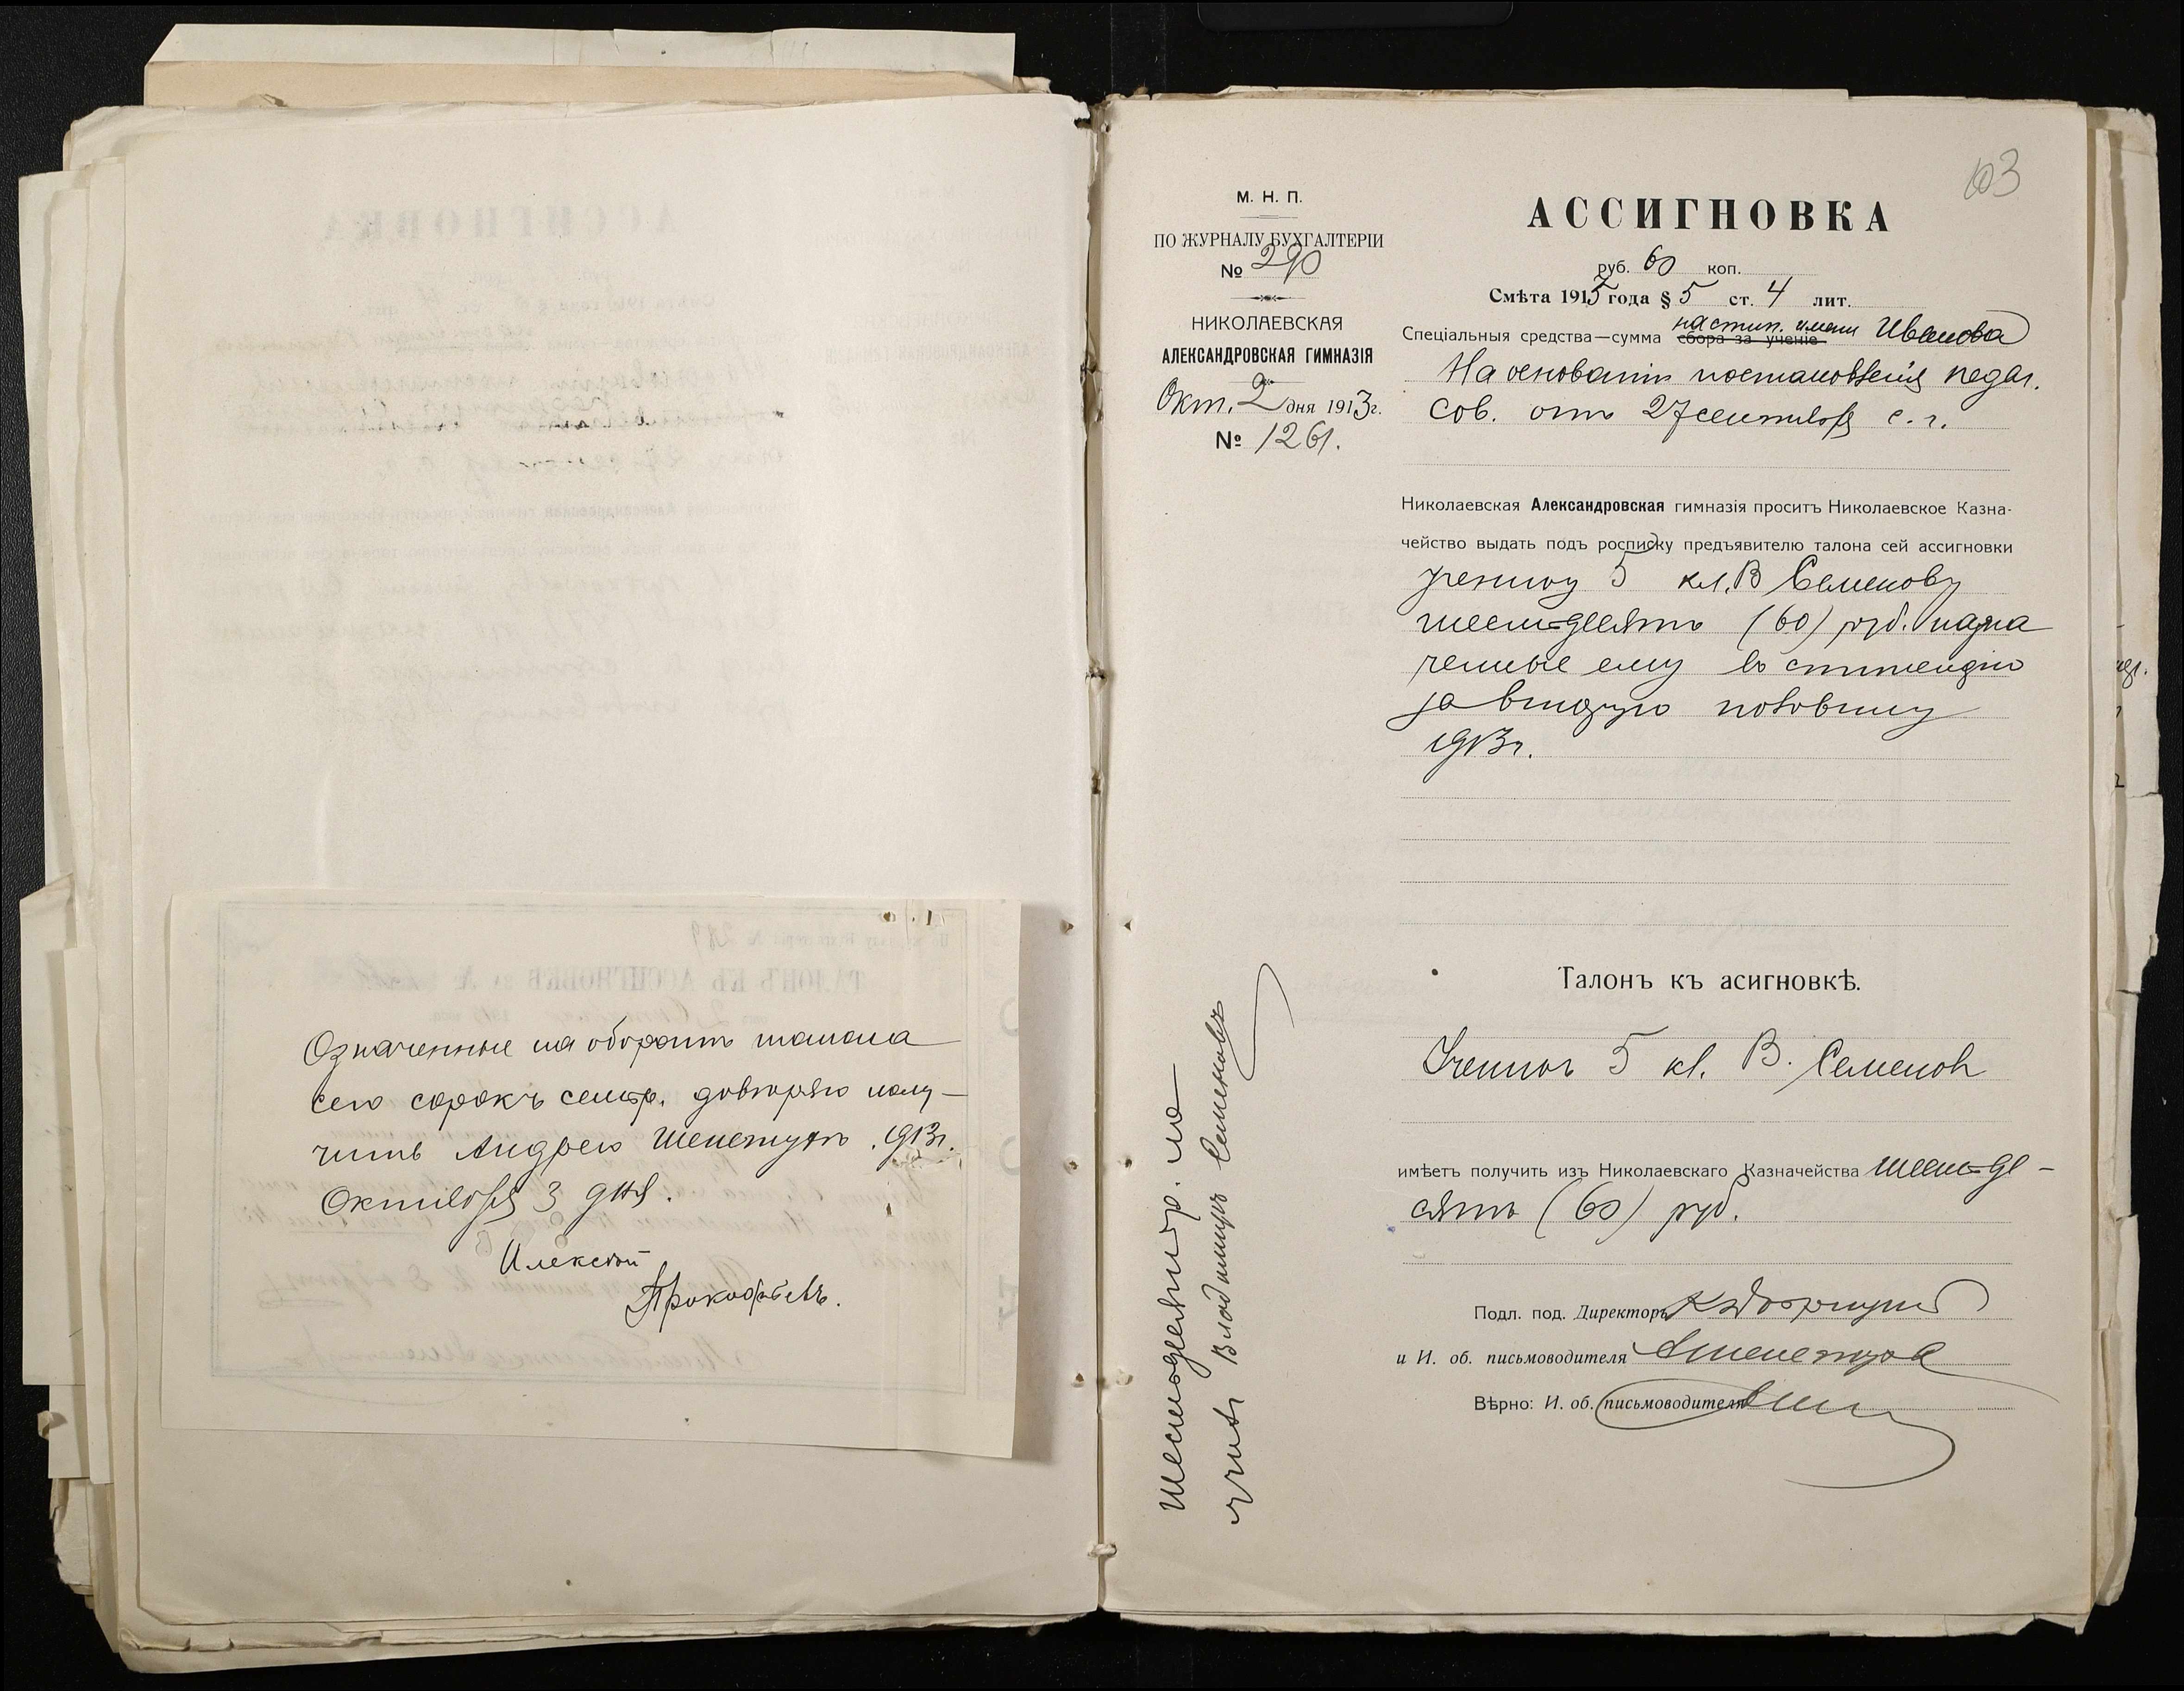 Означенные на оборотѣ талона
сего сорокъ семь р. довѣряю полу-
чить Андрею Шелестуку. 1913г.
Октября 3 дня.
Алексѣй
Прокофьевъ.
103
М. Н. П.
ПО ЖУРНАЛУ БУХГАЛТЕРІИ
№ 290
НИКОЛАЕВСКАЯ
АЛЕКСАНДРОВСКАЯ ГИМНАЗІЯ
Окт. 2 дня 1913г.
№ 1261.
АССИГНОВКА
руб. 60 коп.
Смѣта 1913 года § 5 ст. 4 лит.
Спеціальныя средства—сумма сбора за ученіе на стип. имени Иванова
На основаніи постановленія педаг.
сов. отъ 27 сентября с. г.
Николаевская Александровская гимназія проситъ Николаевское Казна-
чейство выдать подъ росписку предъявителю талона сей ассигновки
ученику 5 кл. В Семенову
шестьдесятъ (60) руб. назна
ченные ему въ стипендію
за вторую половину
1913г.
Талонъ къ асигновкѣ.
Ученикъ 5 кл. В. Семенов
имѣетъ получить изъ Николаевскаго Казначейства шестьде-
сятъ (60) руб.
Подл. под. Директоръ
и И. об. письмоводителя
Вѣрно: И. об. письмоводителя
Шестьдесятъ р. по
лучилъ Владимиръ Семеновъ